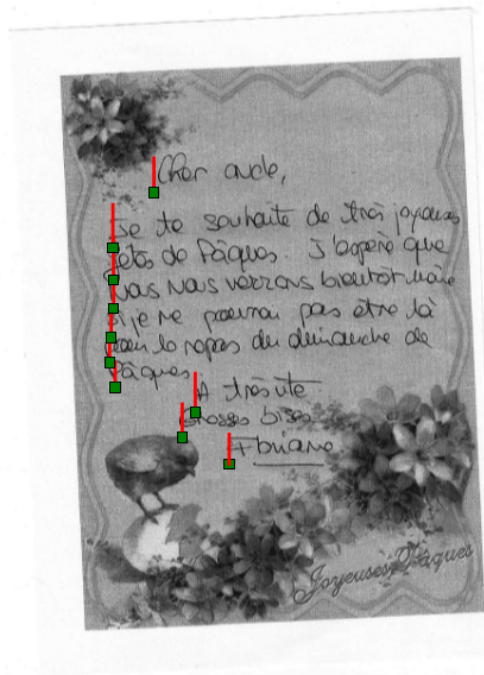 Cher oncle,
Je te souhaite de très joyeuses
fêtes de Pâques. J'espère que
nous nous verrons bientôt même
si je ne pourrai pas être là
pour le repas du dimanche de
Pâques.
A très vite
Grosses bises
Joyeuses Pâques